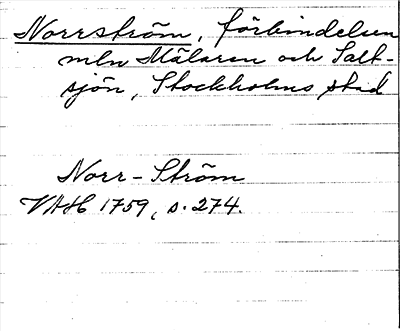 Norrström, förbindelsen
mln Mälaren och Salt-
sjön, Stockholms stad
Norr-Ström
VAH 1759, s. 274.